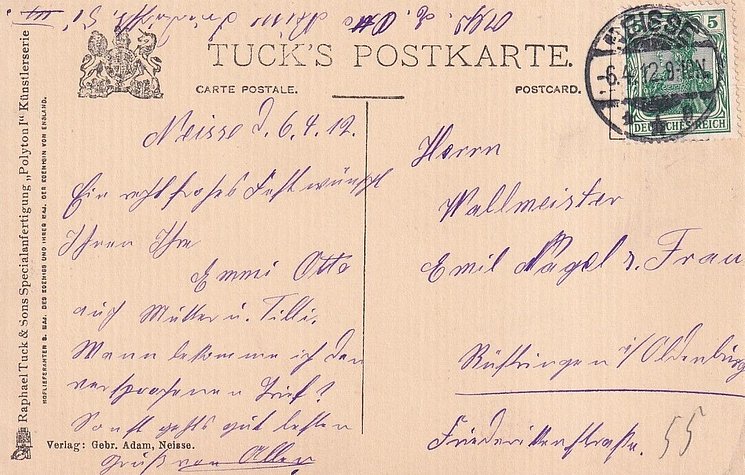 TUCK'S POSTKARTE.
CARTE POSTALE.
POSTCARD.
NEISSE
-6.4.12.8-10N.
5
DEUTSCHES REICH
Neisse d. 6.4.12.
Ein recht frohes Fest wünscht
Ihnen Ihre
Emmi Otto
auch Mutter u. Tilli.
Wann bekomme ich den
versprochenen Brief?
Sonst gehts gut besten
Gruß von Allen
Herrn
Wallmeister
Emil Nagel u. Frau
Rüstringen i/Oldenburg
Friederikenstraße. 55
Verlag: Gebr. Adam, Neisse.
Raphael Tuck & Sons Specialanfertigung „Polyton I“ Künstlerserie
HOFLIEFERANTEN S. MAJ. DES KOENIGS UND IHRER MAJ. DER KOENIGIN VON ENGLAND.